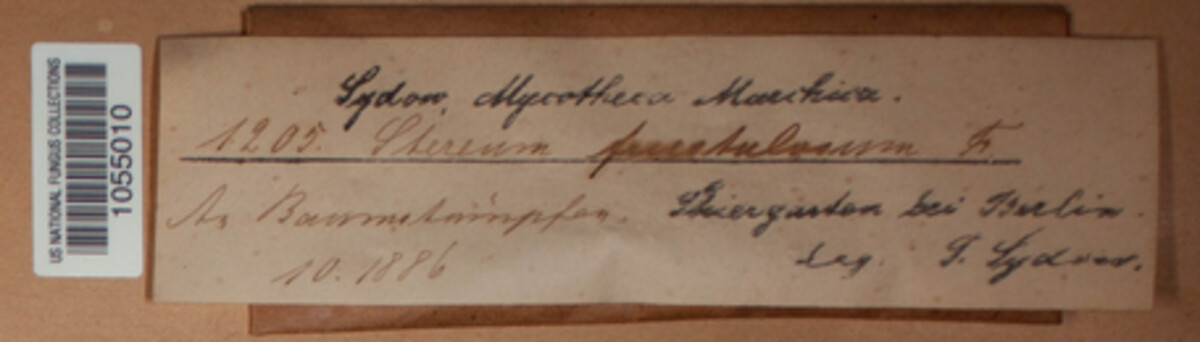 US NATIONAL FUNGUS COLLECTIONS
1055010
Sydow, Mycotheca Marchica.
1205. Stereum frustulosum F.
An Baumstümpfen. Thiergarten bei Berlin.
10. 1886 leg. P. Sydow.